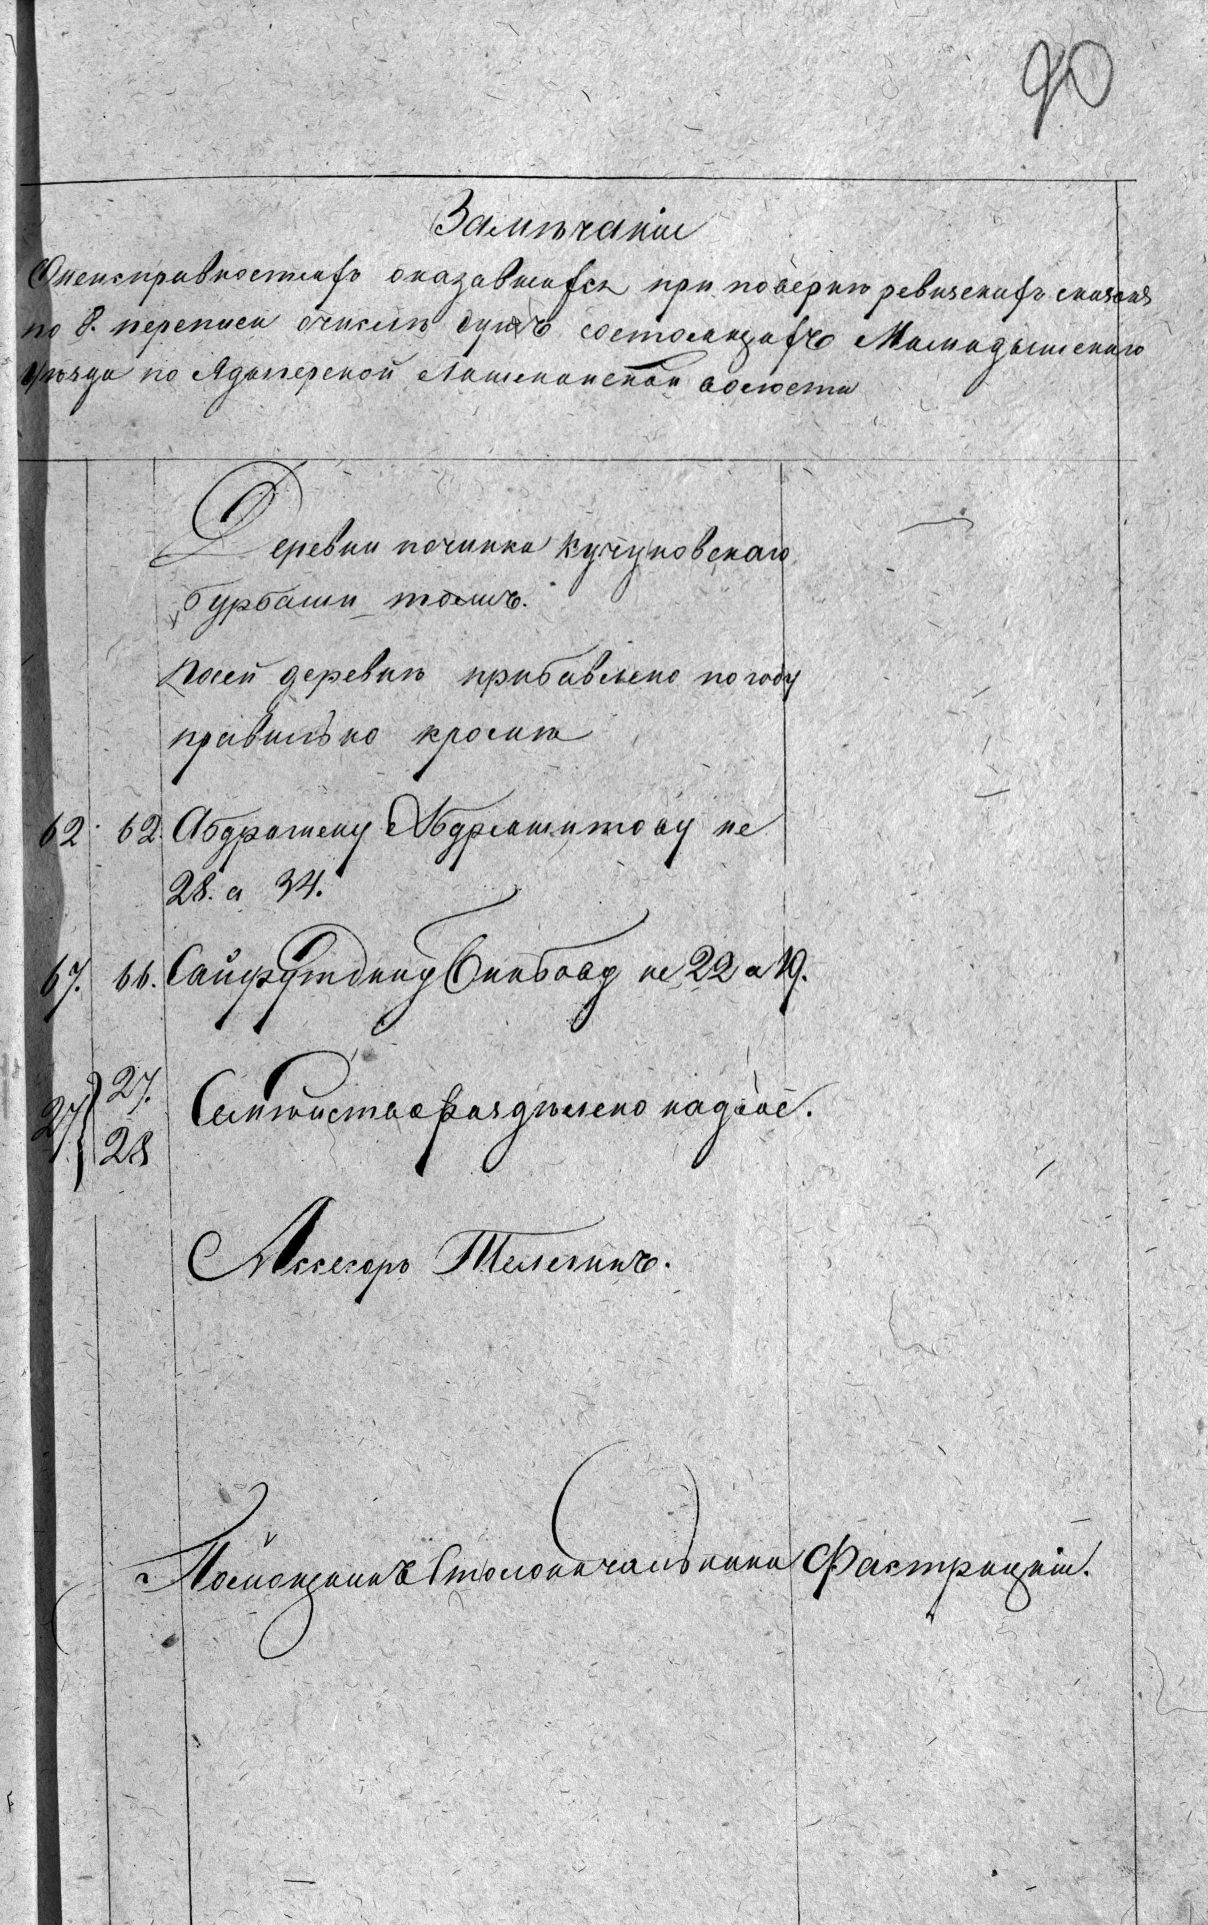 90
Замѣчаніе
Онеисправностяхъ оказавшихся при поверкѣ ревизскихъ сказокъ
по 8. переписи очислѣ душъ состоящихъ Мамадышскаго
уѣзда по волости
Деревни починка Кучуковскаго
Бурбаши тожъ.
Посей деревнѣ прибавлено погоду
правильно кромѣ
62. 62. Абдрашеку Абдрашитову не
28. а 34.
67. 66. Сайфутдину не 22 а 19.
27 { 27.
28 Семѣйство раздѣлено надвое.
Ассесоръ Телегинъ.
Помощникъ Столоначальника